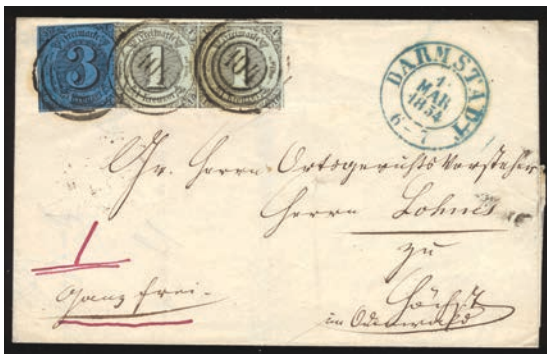 Freimarke
3
Kreuzer.
Freimarke
1
Kreuzer.
Freimarke
1
Kreuzer.
104
104
DARMSTADT
1.
MAR
1854
6–7
Gr. Herrn Ortsgerichts Vorsteher
Herrn Lohnes
zu
Höchst
im Odenwald
1
Ganz frei.